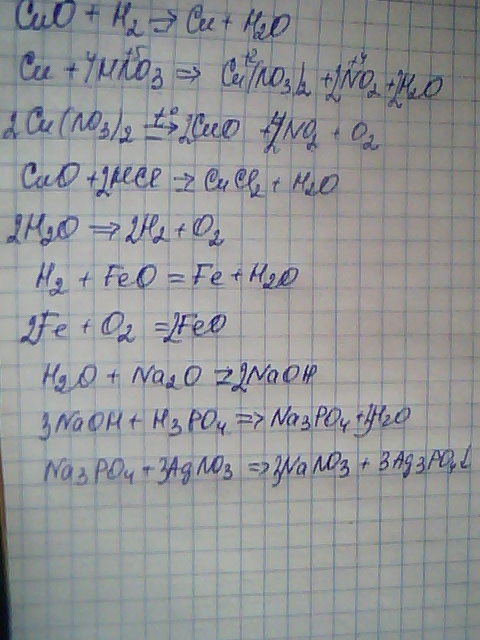 CuO + H2 => Cu + H2O
Cu + 4HN+5O3 => Cu+2(NO3)2 + 2N+4O2 + 2H2O
2Cu(NO3)2 t°=> 2CuO + 4NO2 + O2
CuO + 2HCl => CuCl2 + H2O
2H2O => 2H2 + O2
H2 + FeO = Fe + H2O
2Fe + O2 = 2FeO
H2O + Na2O = 2NaOH
3NaOH + H3PO4 => Na3PO4 + 3H2O
Na3PO4 + 3AgNO3 => 3NaNO3 + 3Ag3PO4↓